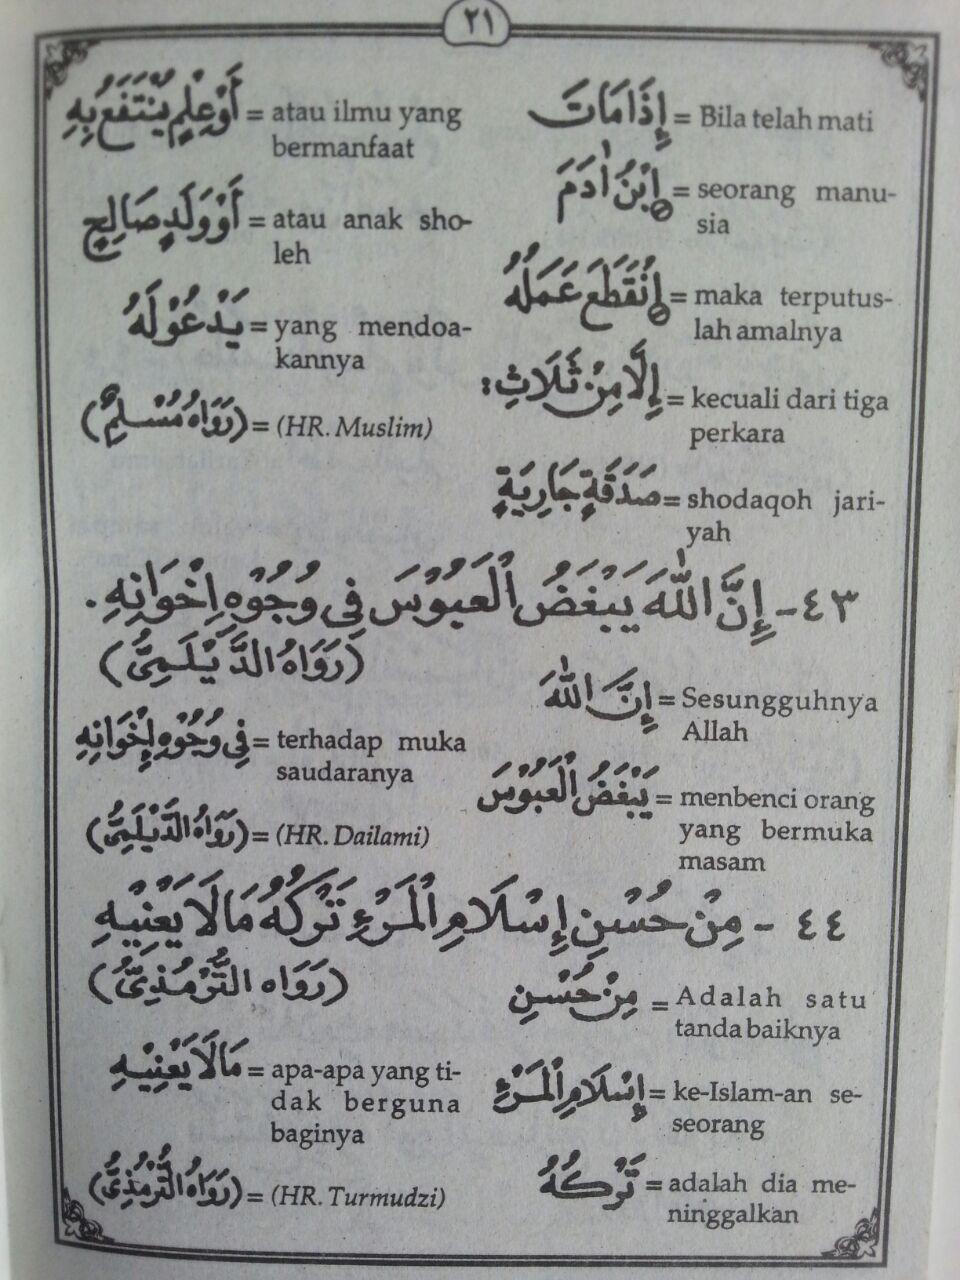 ٢١
إِذَا مَاتَ = Bila telah mati
اِبْنُ اٰدَمَ = seorang manu-
sia
اِنْقَطَعَ عَمَلُهُ = maka terputus-
lah amalnya
إِلَّا مِنْ ثَلَاثٍ : = kecuali dari tiga
perkara
صَدَقَةٍ جَارِيَةٍ = shodaqoh jari-
yah
أَوْعِلْمٍ يُنْتَفَعُ بِهِ = atau ilmu yang
bermanfaat
أَوْوَلَدٍ صَالِحٍ = atau anak sho-
leh
يَدْعُوْلَهُ = yang mendoa-
kannya
(رَوَاهُ مُسْلِمٌ) = (HR. Muslim)
٤٣- إِنَّ اللّٰهَ يَبْغَضُ الْعَبُوْسَ فِى وُجُوْهِ اِخْوَانِهِ .
(رَوَاهُ الدَّيْلَمِىُّ)
إِنَّ اللّٰهَ = Sesungguhnya
Allah
يَبْغَضُ الْعَبُوْسَ = menbenci orang
yang bermuka
masam
فِى وُجُوْهِ اِخْوَانِهِ = terhadap muka
saudaranya
(رَوَاهُ الدَّيْلَمِىُّ) = (HR. Dailami)
٤٤ - مِنْ حُسْنِ إِسْلَامِ الْمَرْءِ تَرْكُهُ مَالَا يَعْنِيْهِ
(رَوَاه التِّرْمُذِىُّ)
مِنْ حُسْنِ = Adalah satu
tanda baiknya
إِسْلَامِ الْمَرْءِ = ke-Islam-an se-
seorang
تَرْكُهُ = adalah dia me-
ninggalkan
مَالَا يَعْنِيْهِ = apa-apa yang ti-
dak berguna
baginya
(رَوَاهُ التُّرْمُذِىُّ) = (HR. Turmudzi)